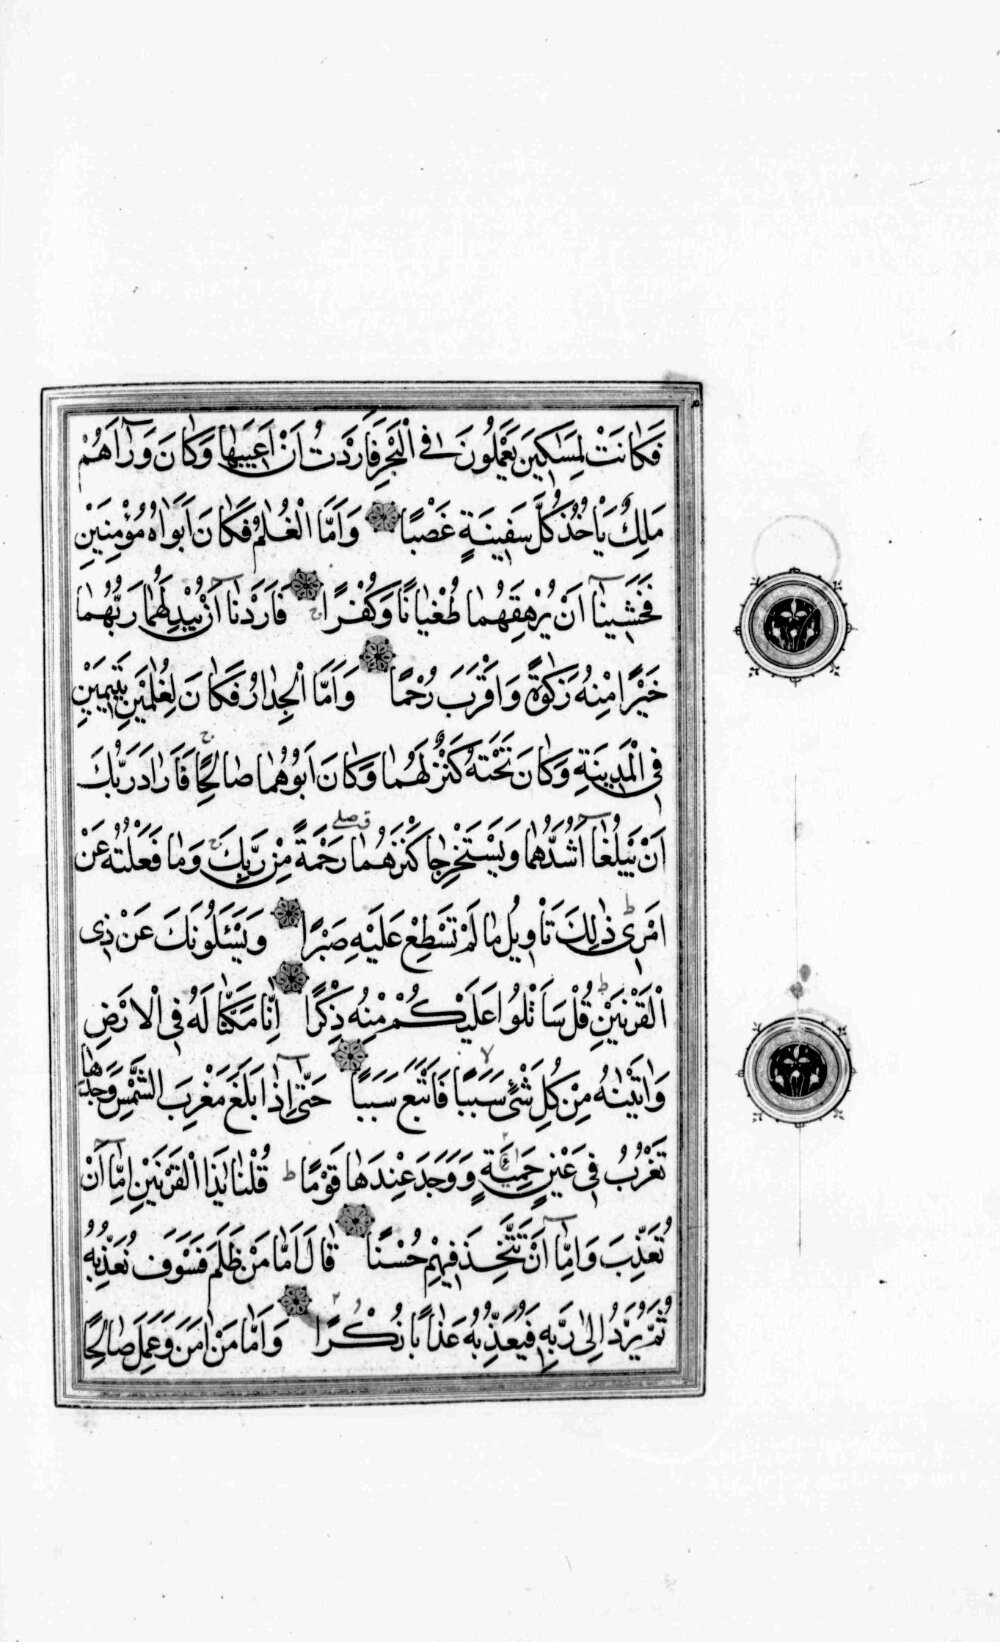 فَكَانَتْ لِمَسَاكِينَ يَعْمَلُونَ فِي الْبَحْرِ فَاَرَدْتُ اَنْ اَعِيبَهَا وَكَانَ وَرَآءَهُمْ
مَلِكٌ يَاْخُذُ كُلَّ سَفِينَةٍ غَصْبًا وَاَمَّا الْغُلٰمُ فَكَانَ اَبَوَاهُ مُؤْمِنَيْنِ
فَخَشِينَآ اَنْ يُرْهِقَهُمَا طُغْيَانًا وَكُفْرًا ج فَاَرَدْنَآ اَنْ يُبْدِلَهُمَا رَبُّهُمَا
خَيْرًا مِنْهُ زَكٰوةً وَاَقْرَبَ رُحْمًا وَاَمَّا الْجِدَارُ فَكَانَ لِغُلٰمَيْنِ يَتِيمَيْنِ
فِي الْمَدِينَةِ وَكَانَ تَحْتَهُ كَنْزٌ لَهُمَا وَكَانَ اَبُوهُمَا صَالِحًا ج فَاَرَادَ رَبُّكَ
اَنْ يَبْلُغَآ اَشُدَّهُمَا وَيَسْتَخْرِجَا كَنْزَهُمَا ق صلے رَحْمَةً مِنْ رَبِّكَ ج وَمَا فَعَلْتُهُ عَنْ
اَمْرِي ط ذٰلِكَ تَاْوِيلُ مَا لَمْ تَسْطِعْ عَلَيْهِ صَبْرًا وَيَسْئَلُونَكَ عَنْ ذِي
الْقَرْنَيْنِ ط قُلْ سَاَتْلُوا عَلَيْكُمْ مِنْهُ ذِكْرًا اِنَّا مَكَّنَّا لَهُ فِي الْاَرْضِ
وَاٰتَيْنٰهُ مِنْ كُلِّ شَيْءٍ سَبَبًا لا فَاَتْبَعَ سَبَبًا حَتّٰٓى اِذَا بَلَغَ مَغْرِبَ الشَّمْسِ وَجَدَهَا
تَغْرُبُ فِي عَيْنٍ حَمِئَةٍ وَوَجَدَ عِنْدَهَا قَوْمًا ط قُلْنَا يٰذَا الْقَرْنَيْنِ اِمَّآ اَنْ
تُعَذِّبَ وَاِمَّآ اَنْ تَتَّخِذَ فِيهِمْ حُسْنًا قَالَ اَمَّا مَنْ ظَلَمَ فَسَوْفَ نُعَذِّبُهُ
ثُمَّ يُرَدُّ اِلٰى رَبِّهِ فَيُعَذِّبُهُ عَذَابًا نُكْرًا وَاَمَّا مَنْ اٰمَنَ وَعَمِلَ صَالِحًا